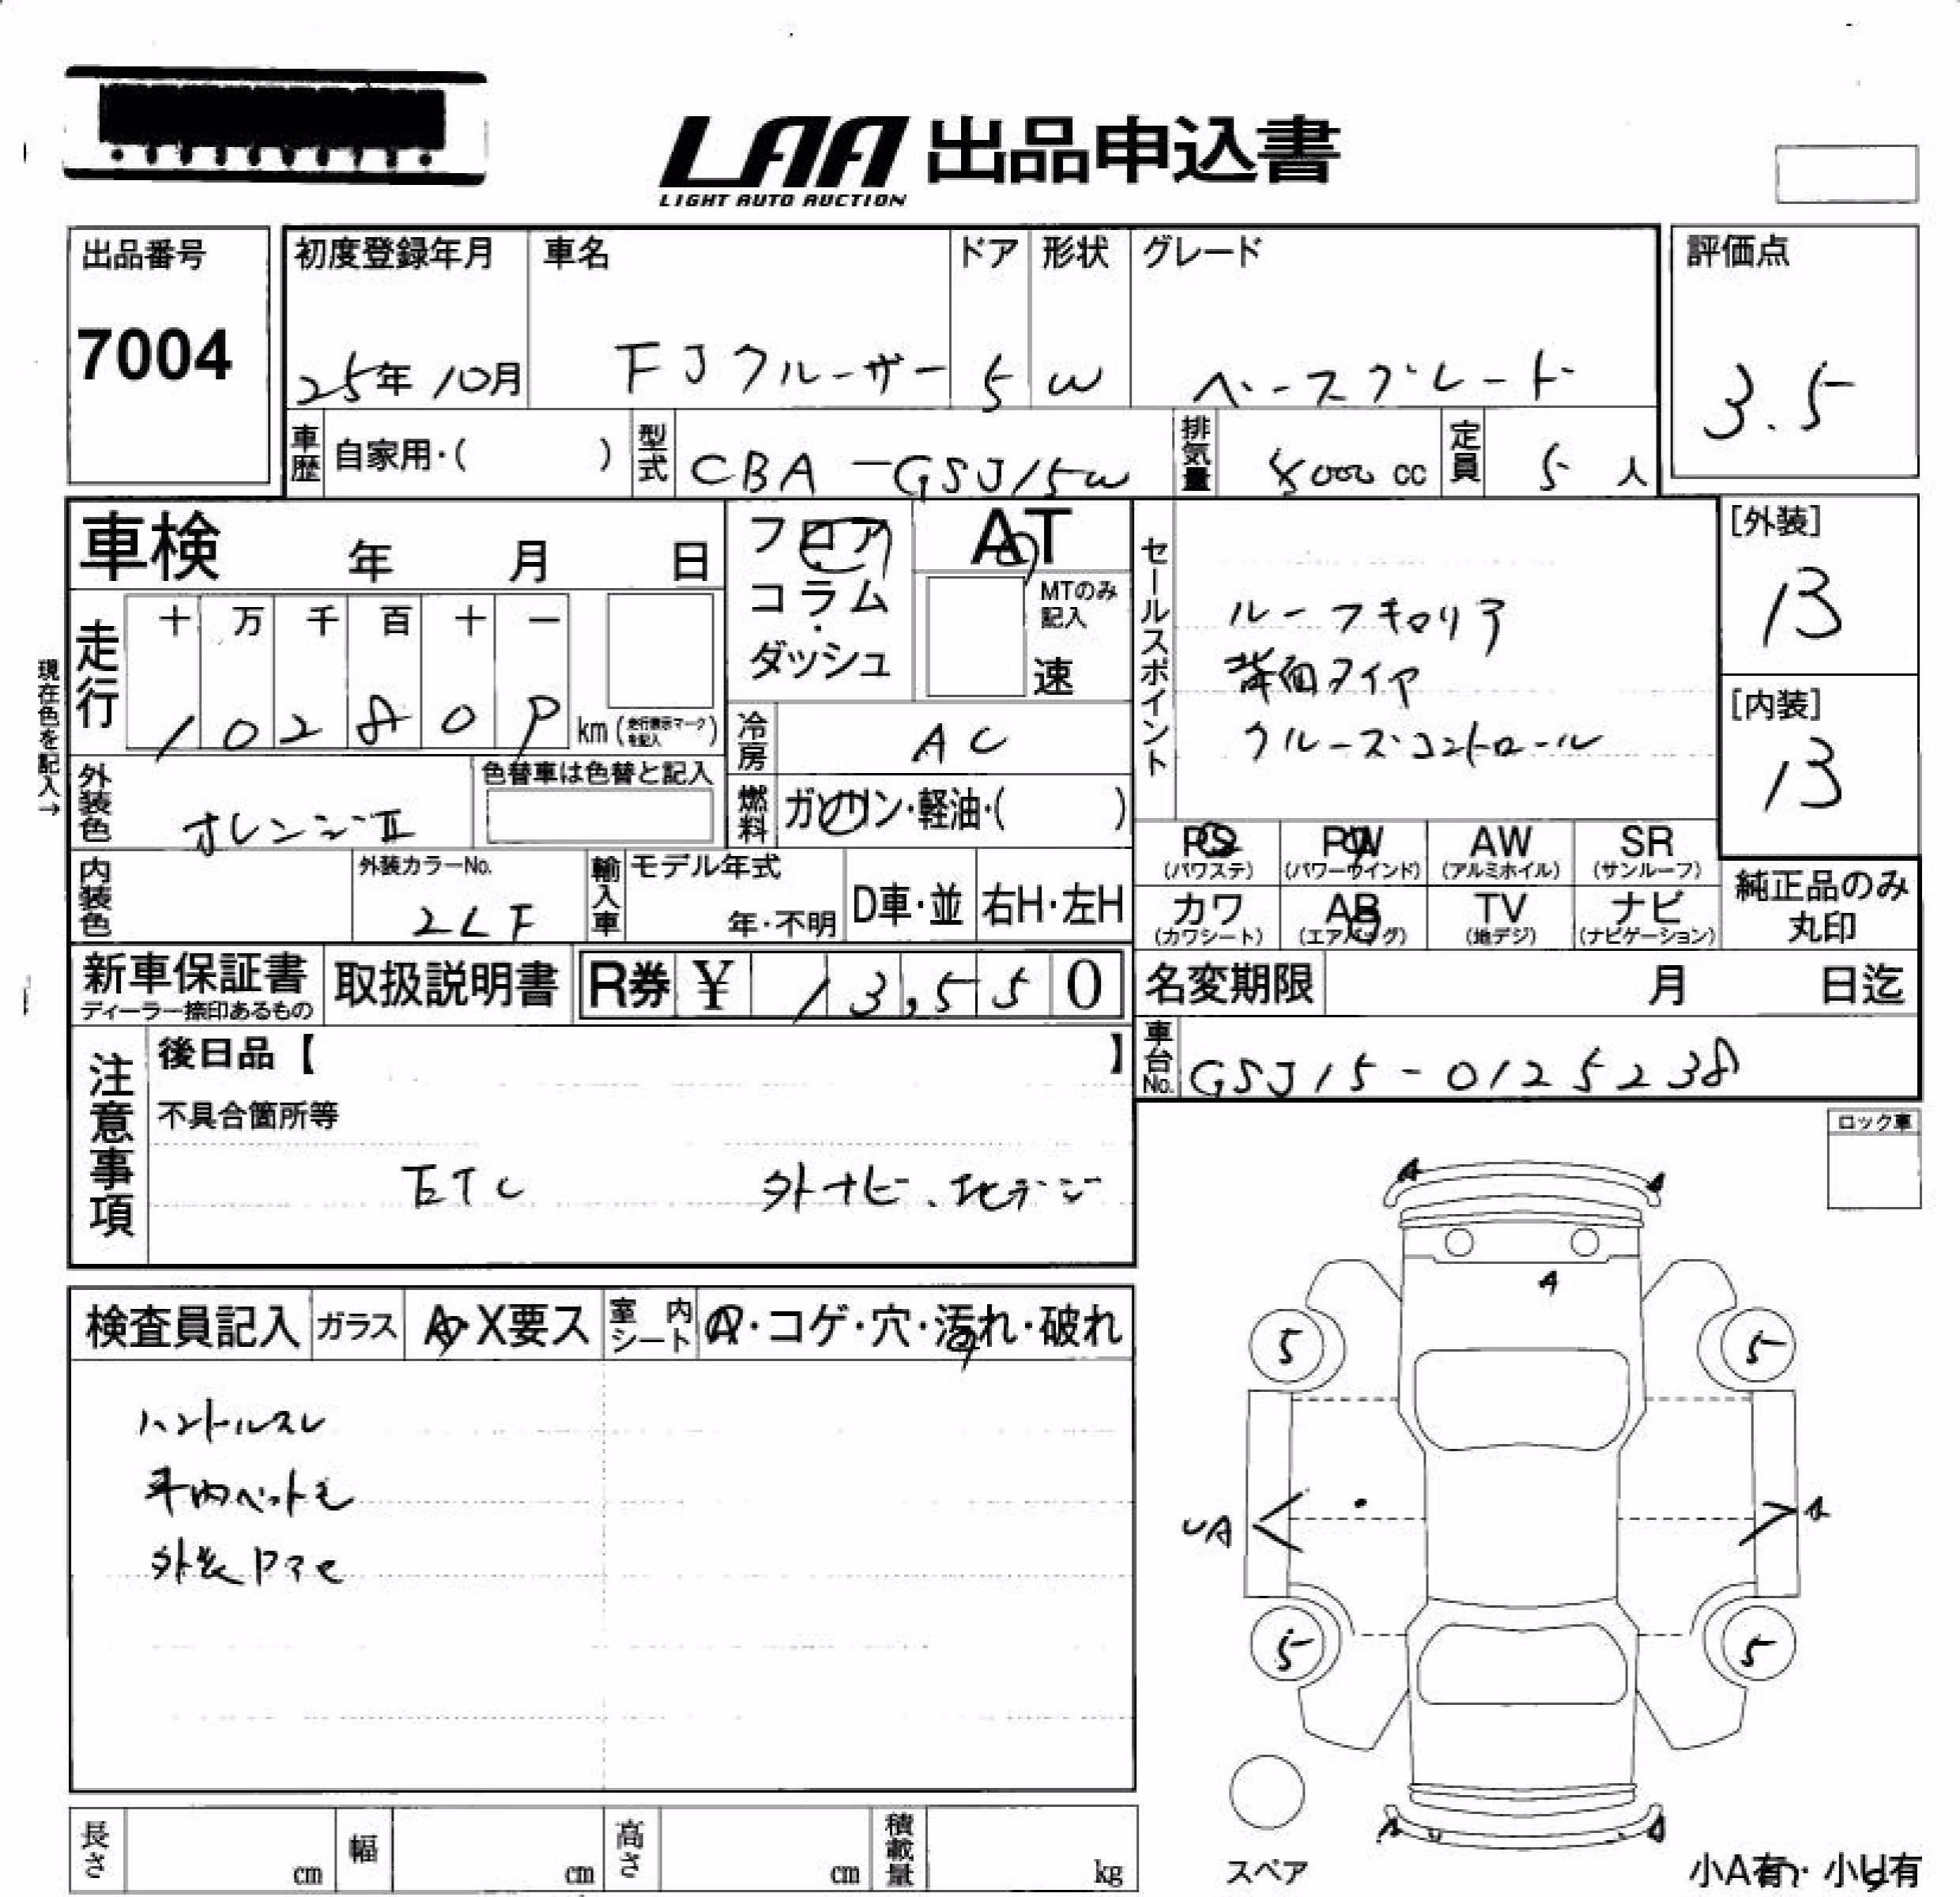 LAA 出品申込書
LIGHT AUTO AUCTION
出品番号
7004
初度登録年月
25年 10月
車名
FJクルーザー
ドア
5
形状
W
グレード
ベースグレード
評価点
3.5
車歴
自家用・( )
型式
CBA-GSJ15W
排気量
4000 cc
定員
5 人
車検 年 月 日
フロア
コラム
・
ダッシュ
AT
MTのみ
記入
速
セールスポイント
ルーフキャリア
背面タイヤ
クルーズコントロール
[外装]
13
[内装]
13
現在色を記入→
走行
十 万 千 百 十 一
1 0 2 8 0 P
km (走行表示マークを記入)
冷房
AC
外装色
オレンジII
色替車は色替と記入
燃料
ガソリン・軽油・( )
PS AW SR
(パワステ) (パワーウインド) (アルミホイル) (サンルーフ)
PW
カワ AB TV ナビ
(カワシート) (エアバッグ) (地デジ) (ナビゲーション)
純正品のみ
丸印
内装色
外装カラーNo.
2LF
輸入車
モデル年式
年・不明
D車・並
右H・左H
新車保証書
ディーラー捺印あるもの
取扱説明書
R券 ¥ 13,550
名変期限 月 日迄
車台No.
GSJ15-0125238
注意事項
後日品【 】
不具合箇所等
ETC 外ナビ、地デジ
ロック車
検査員記入
ガラス
A・X要ス
室内シート
A・コゲ・穴・汚れ・破れ
ハンドルスレ
車内ペット毛
A
A
A
5
5
UA
A
5
5
スペア
小A有・小U有
長さ cm
幅 cm
高さ cm
積載量 kg